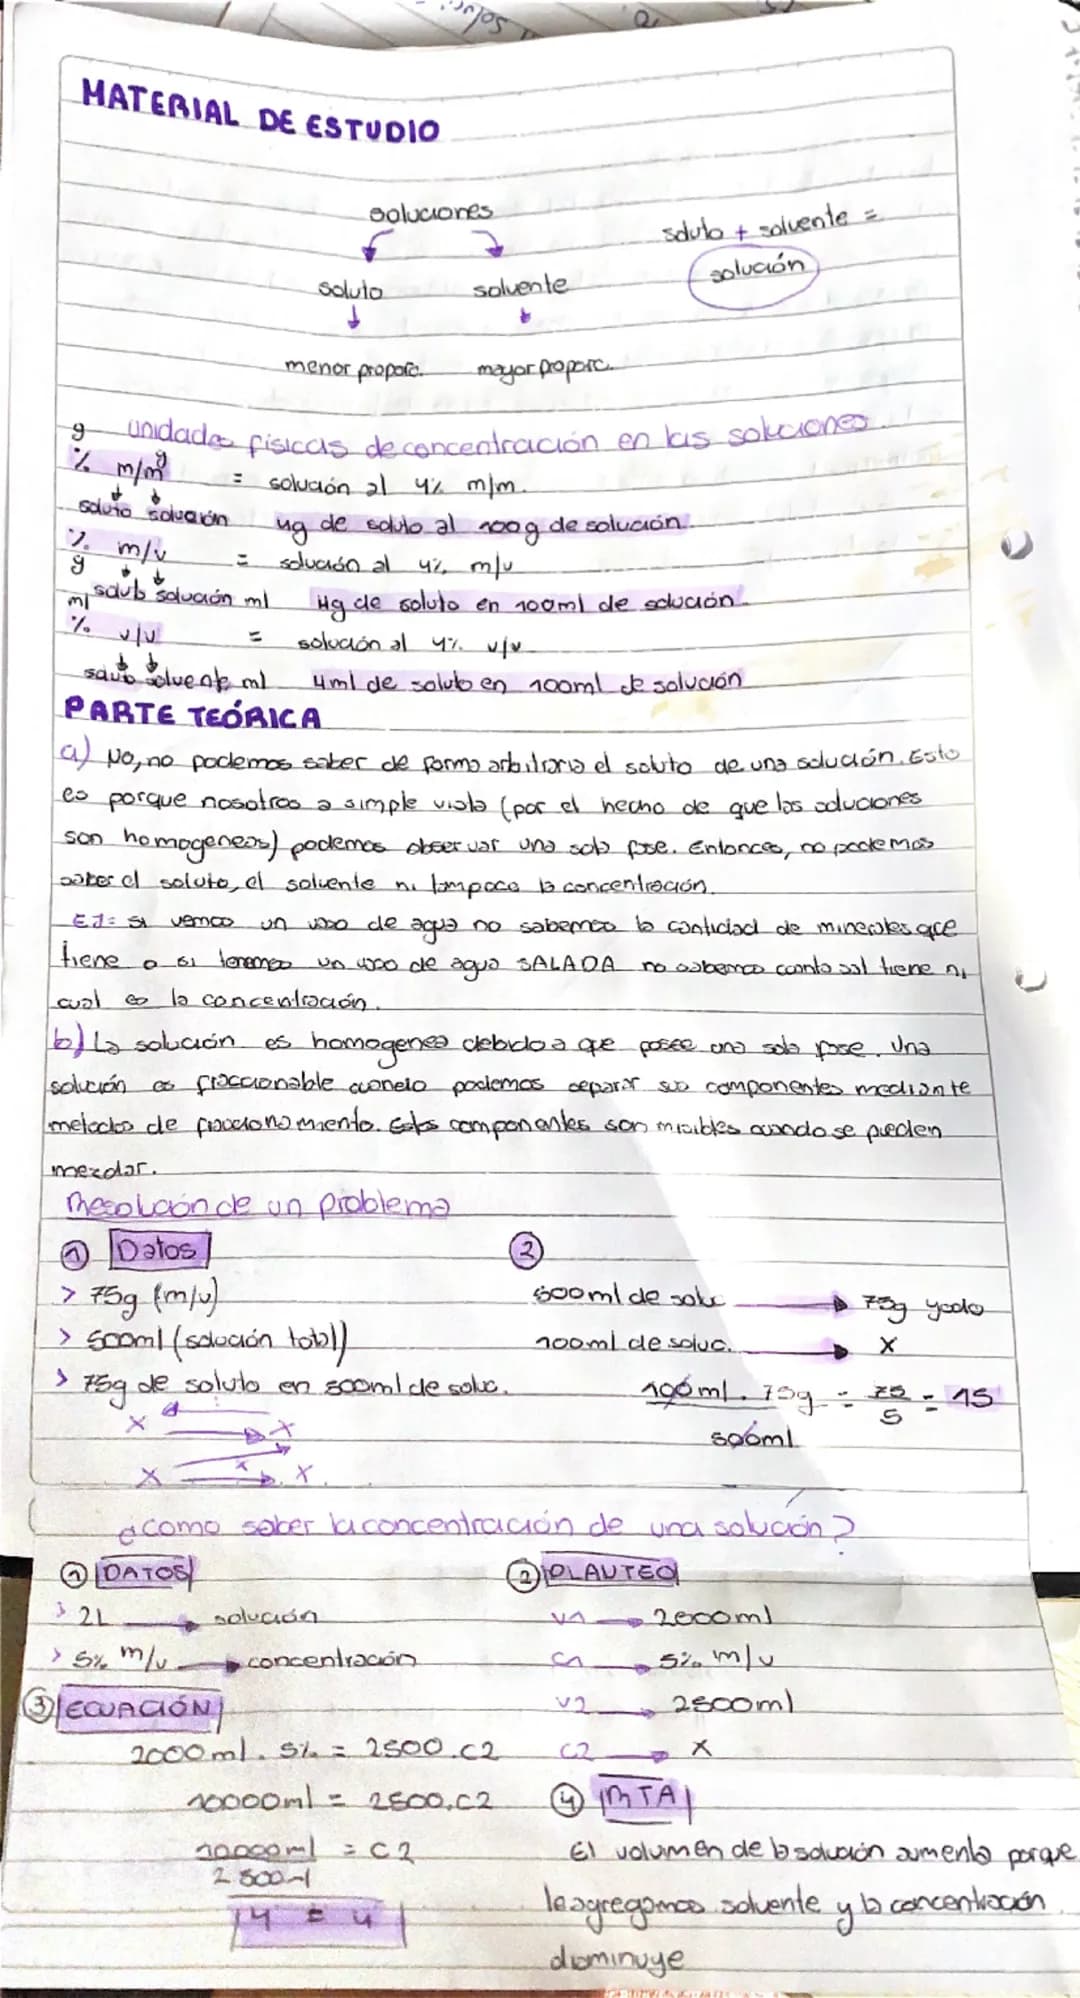 MATERIAL DE ESTUDIO
soluciones
soluto + solvente =
solución
soluto solvente
menor proporc. mayor proporc.
unidades físicas de concentración en las soluciones.
g
% m/m g = solución al 4% m/m.
soluto solución 4g de soluto al 100g de solución.
% m/v = solución al 4% m/v
g
soluto solución ml 4g de soluto en 100ml de solución.
ml
% v/v = solución al 4% v/v
soluto solvente ml 4ml de soluto en 100ml de solución
PARTE TEÓRICA
a) No, no podemos saber de forma arbitraria el soluto de una solución. Esto
es porque nosotros a simple vista (por el hecho de que las soluciones
son homogeneas) podemos observar una sola fase. Entonces, no podemos
saber el soluto, el solvente ni tampoco la concentración.
EJ: si vemos un vaso de agua no sabemos la cantidad de minerales que
tiene o si tenemos un vaso de agua SALADA no sabemos cuanto sal tiene ni
cual es la concentración.
b) La solución es homogenea debido a que posee una sola fase. Una
solución es fraccionable cuando podemos separar sus componentes mediante
metodos de fraccionamiento. Estos componentes son miscibles cuando se pueden
mezclar.
Resolución de un problema
1 Datos 2
> 75g (m/v) 500ml de soluc 75g yodo
> 500ml (solución total) 100ml de soluc. X
> 75g de soluto en 500ml de soluc. 100ml . 75g = 75 = 15
500ml 5
X X
X x X
¿Como saber la concentración de una solución?
1 DATOS 2 PLANTEO
> 2L solución V1 2000ml
> 5% m/v concentración C1 5% m/v
3 ECUACIÓN V2 2500ml
2000ml . 5% = 2500 . C2 C2 X
10000ml = 2500 . C2 4 RTA
10000ml = C2 El volumen de la solución aumenta porque
2500ml le agregamos solvente y la concentración
4 = 4 disminuye